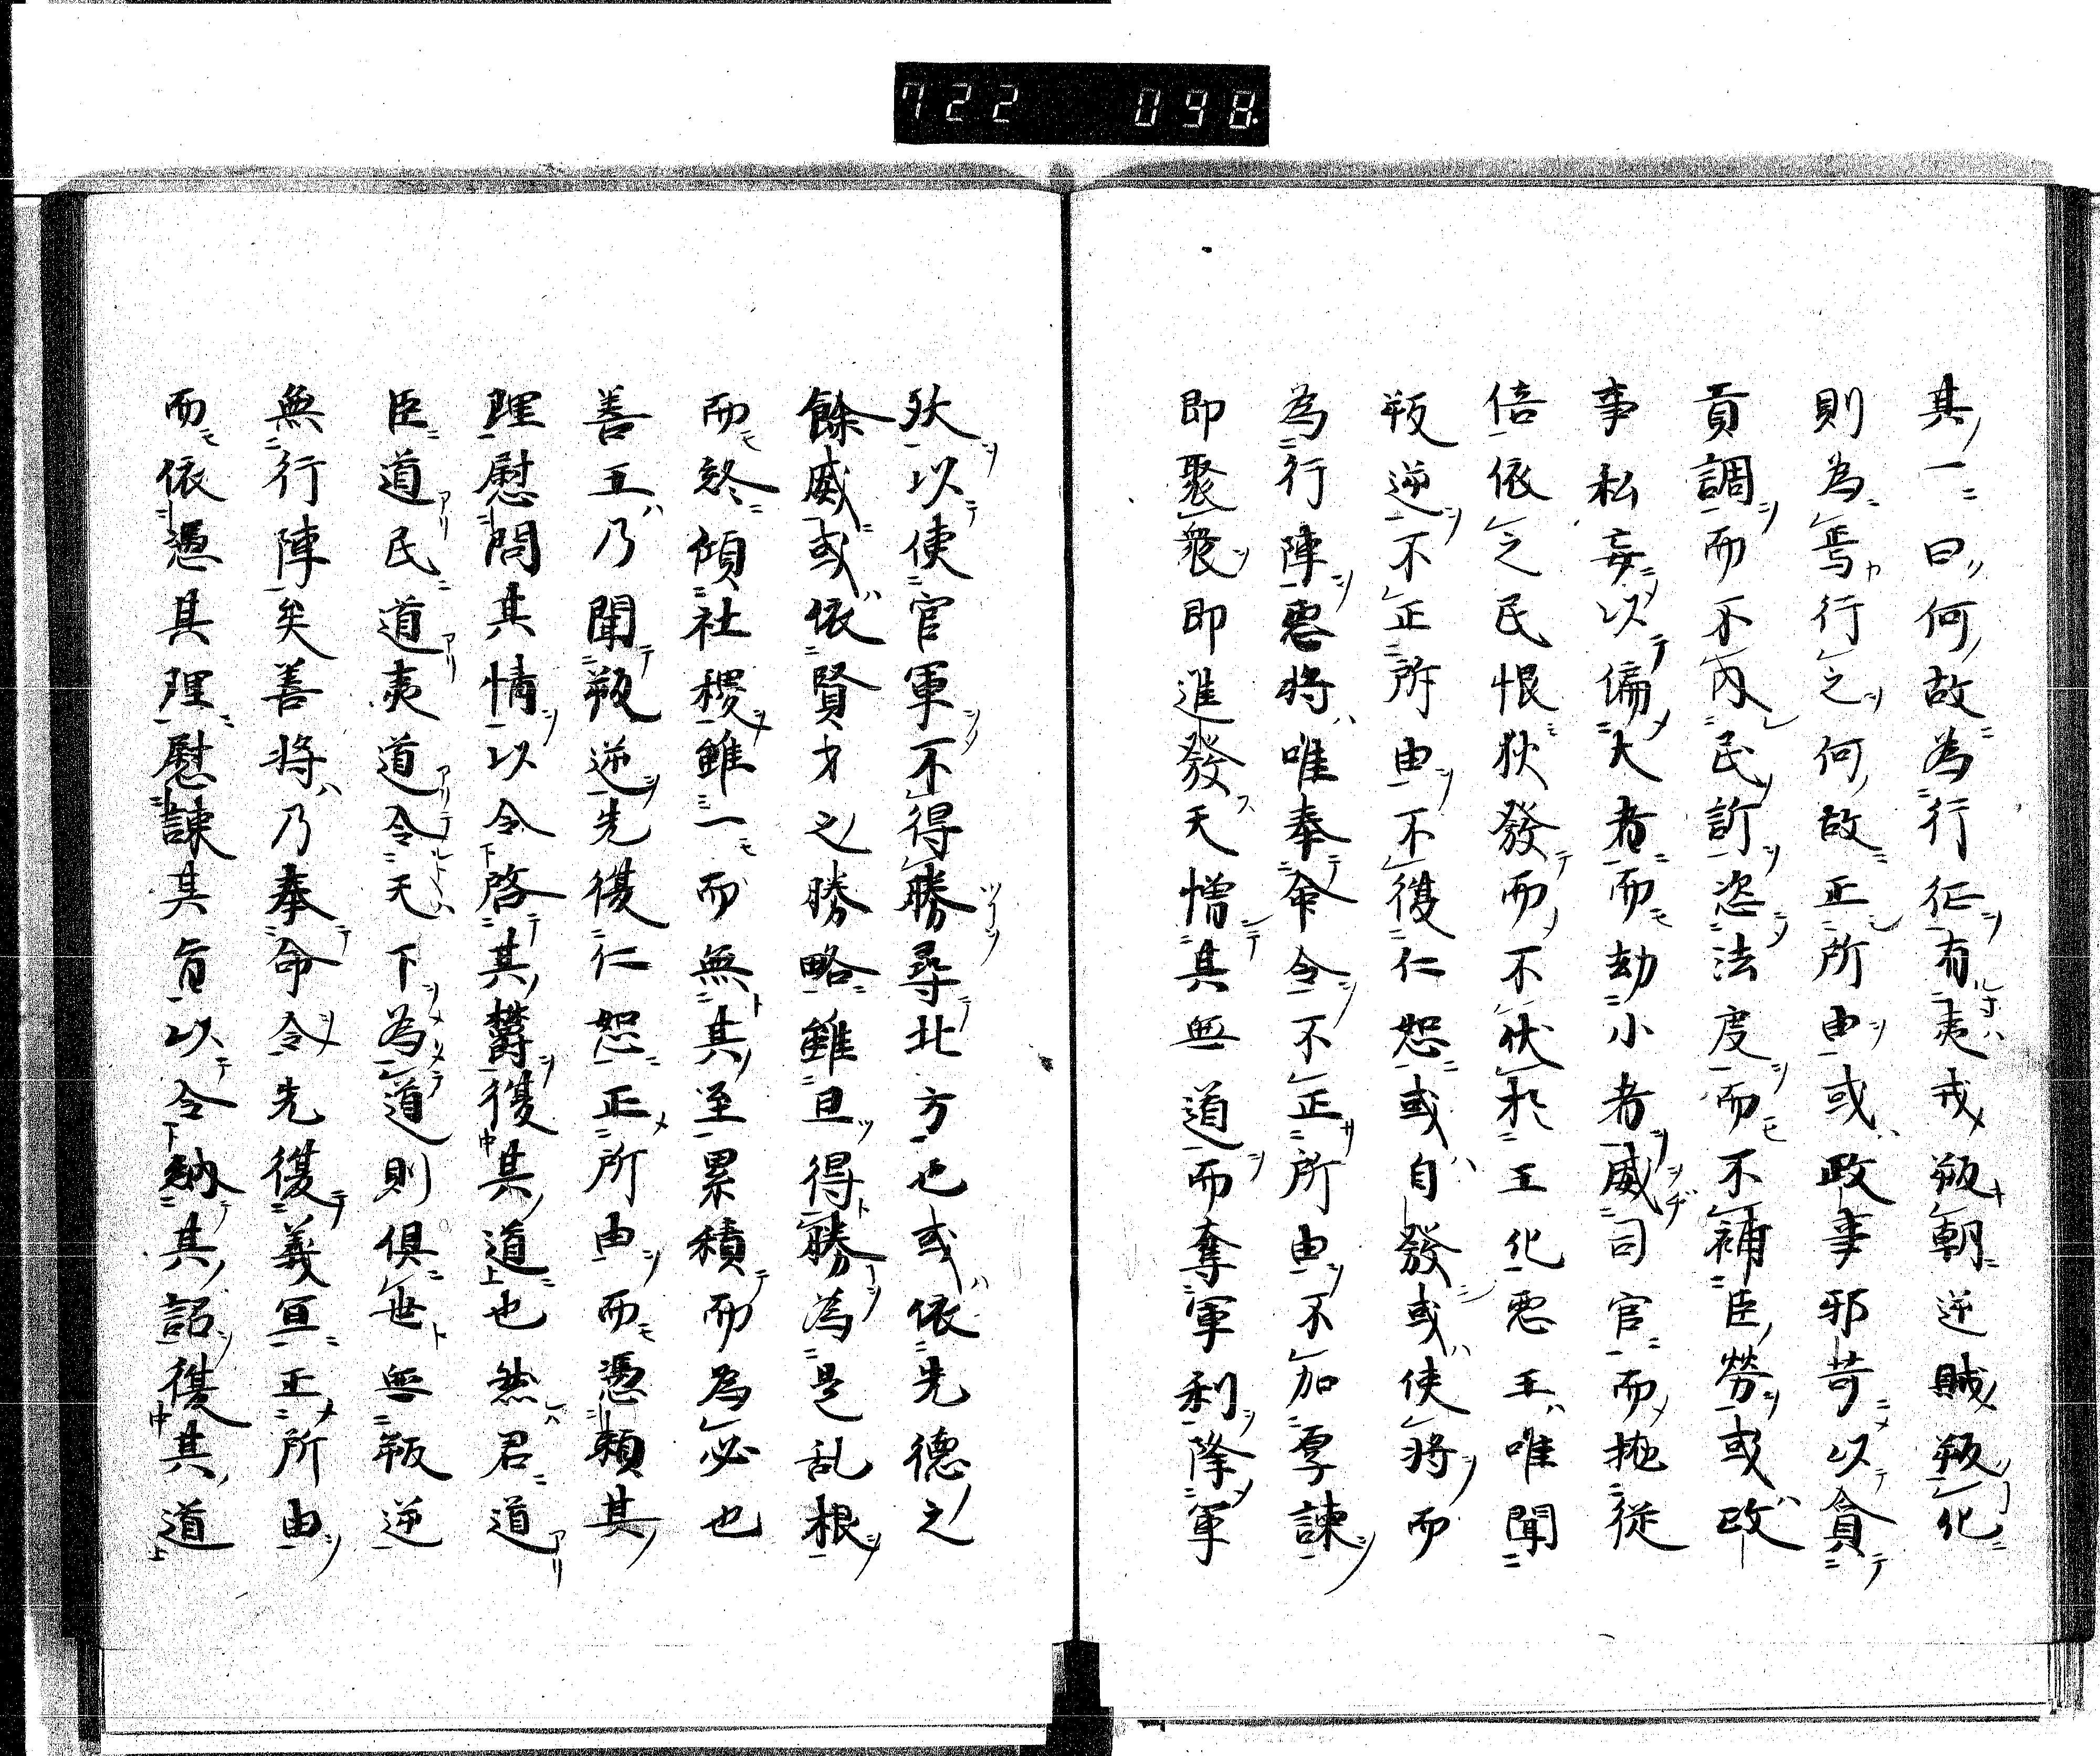 722 098
其一曰何故為行征有夷戎叛朝逆賊叛化
則為焉行之何故正所由或政事邪苛以貪
貢調而不内民訂恣法度而不補臣勞或政
事私妄以偏大者而劫小者威司官而拋従
倍依之民恨狄發而不伏於王化悪王唯聞
叛逆不正所由不復仁恕或自發或使将而
為行陣悪将唯奉命令不正所由不加厚諫
即聚衆即進發天憎其無道而奪軍利降軍
狄以使官軍不得勝尋北方也或依先德之
餘威或依賢才之勝略雖且得勝為是乱根
而終傾社稷雖一而無其至累積而為必也
善王乃聞叛逆先復仁恕正所由而憑頼其
理慰問其情以令啓其欝復其道也然君道
臣道民道夷道令天下為道則倶世無叛逆
無行陣矣善将乃奉命令先復義宜正所由
而依憑其理慰諫其旨以令納其詔復其道